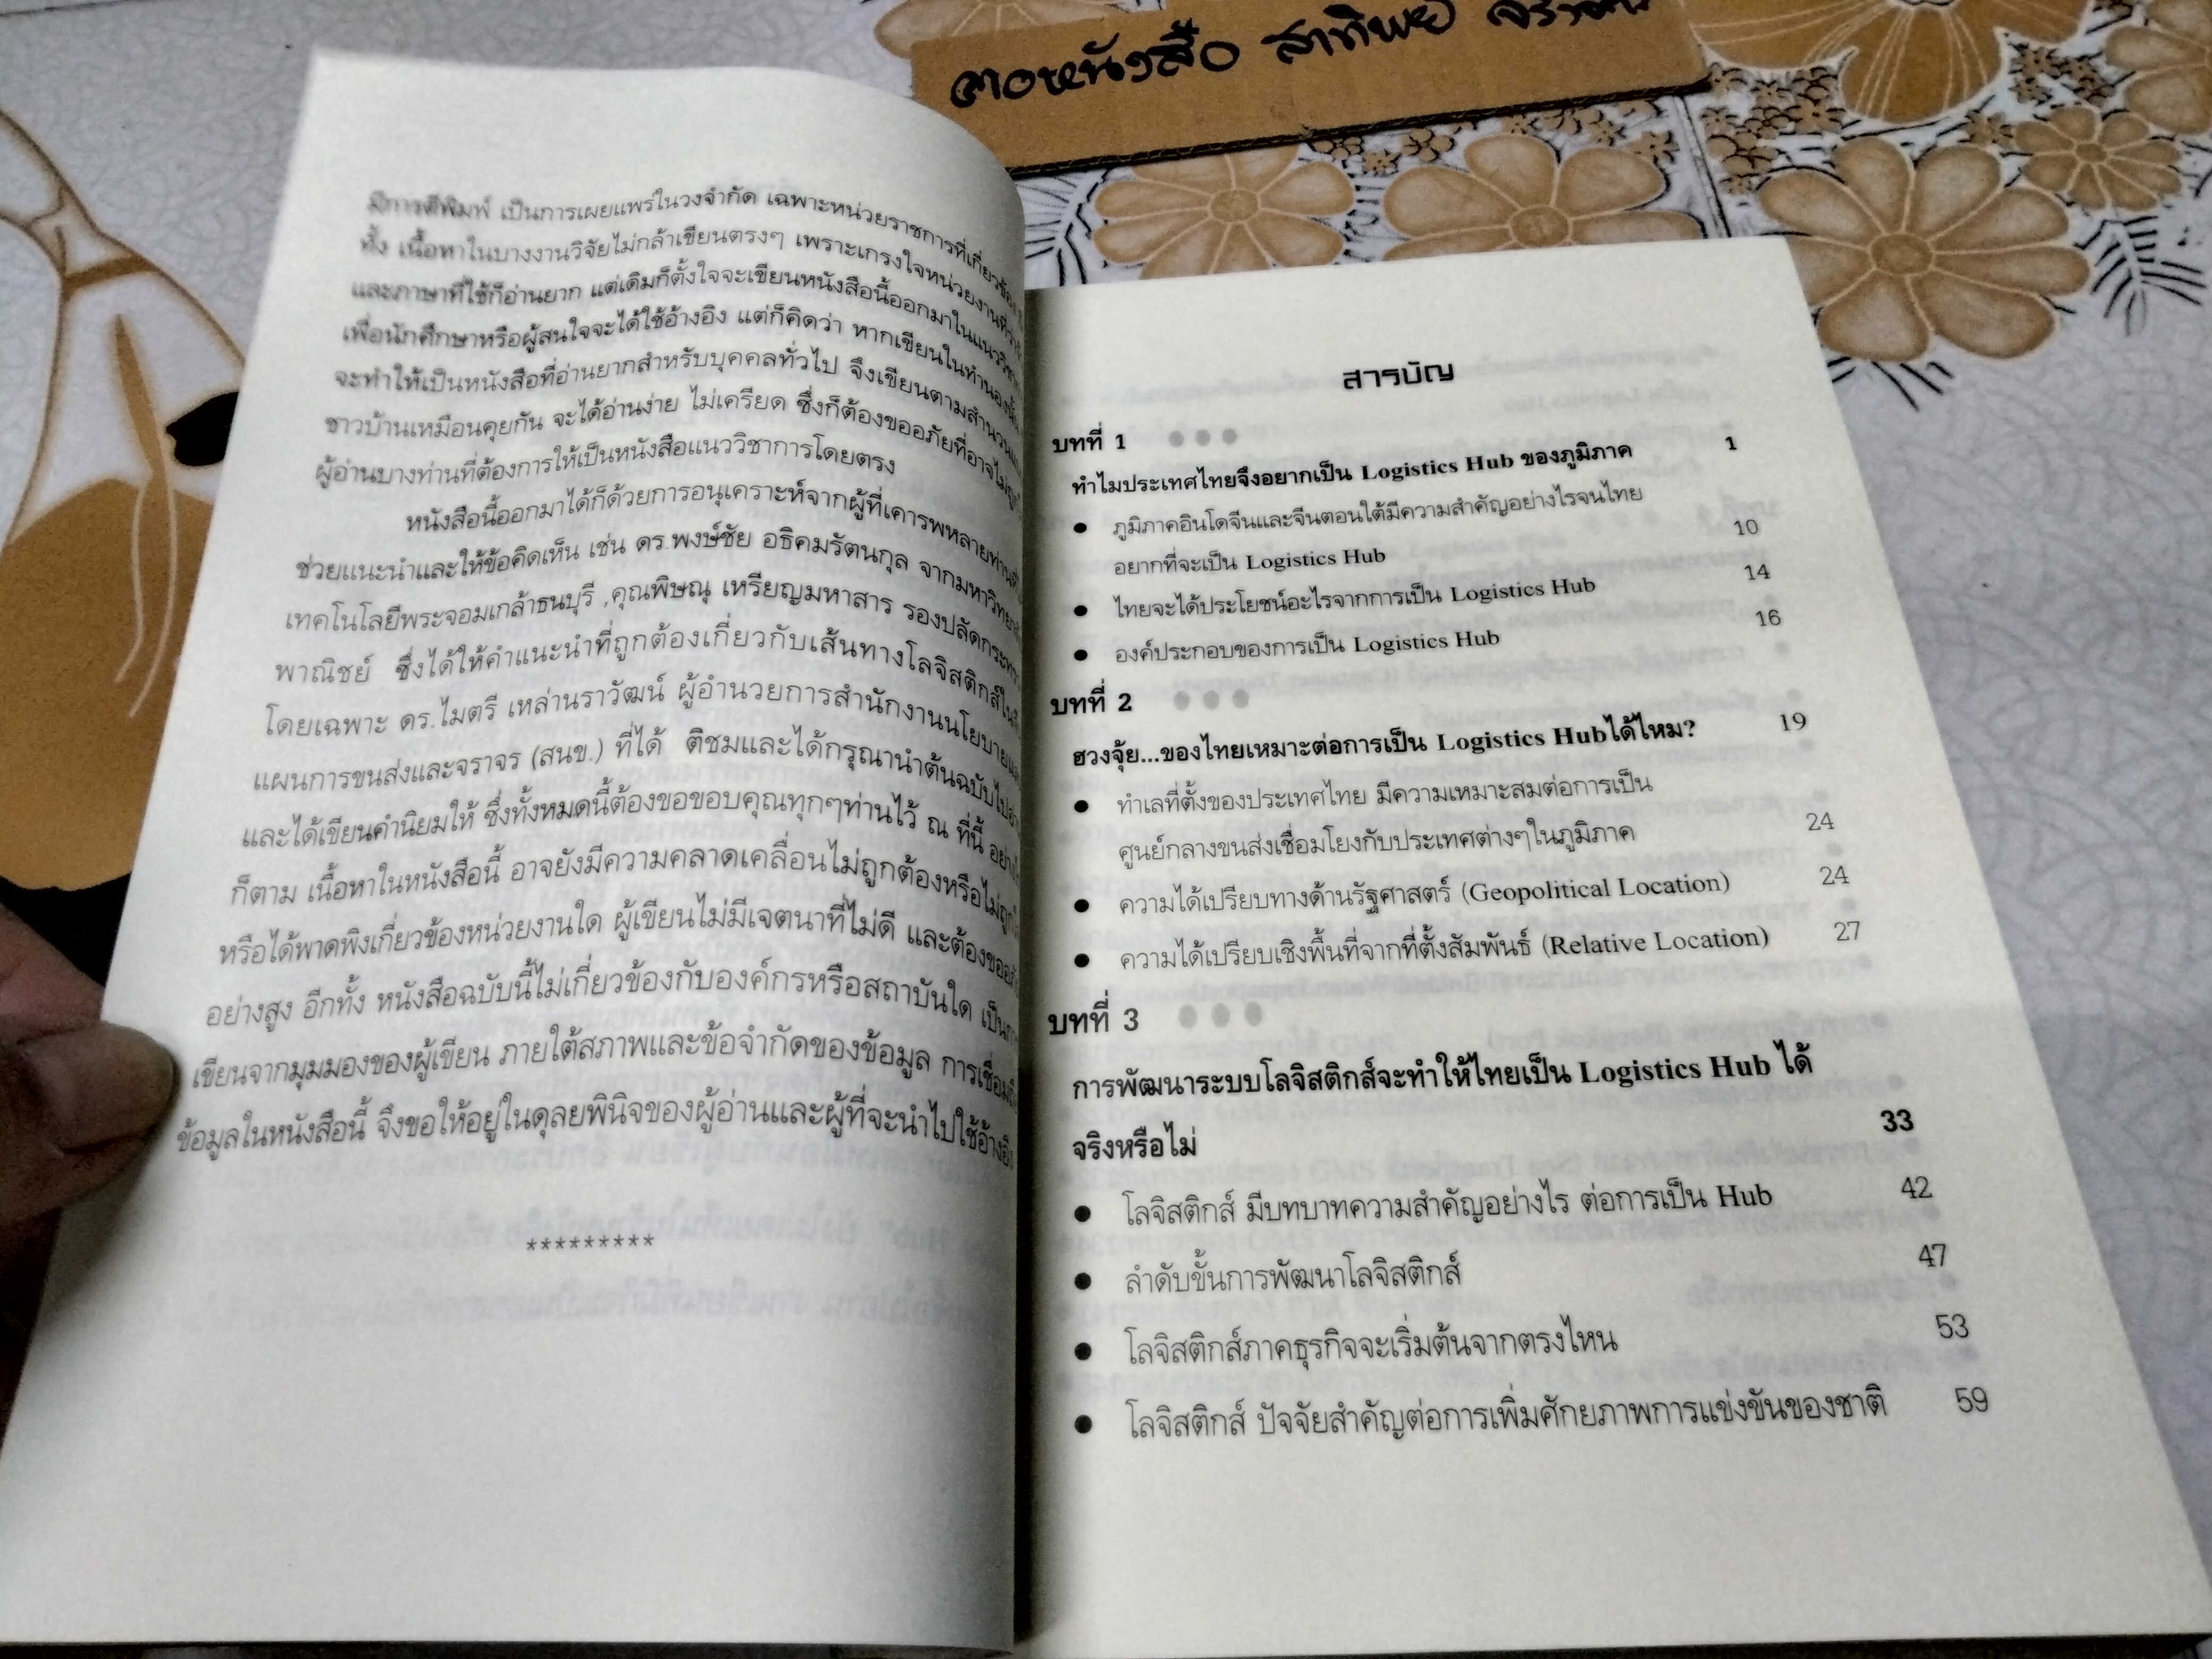 ลาอหนังสือ สาทิพย์
มีการตีพิมพ์ เป็นการเผยแพร่ในวงจำกัด เฉพาะหน่วยราชการที่เกี่ยวข้อง
ทั้ง เนื้อหาในบางงานวิจัยไม่กล้าเขียนตรงๆ เพราะเกรงใจหน่วยงานที่
และภาษาที่ใช้ก็อ่านยาก แต่เดิมก็ตั้งใจจะเขียนหนังสือนี้ออกมาในแนววิชา
เพื่อนักศึกษาหรือผู้สนใจจะได้ใช้อ้างอิง แต่ก็คิดว่า หากเขียนในทำนองนั้น
จะทำให้เป็นหนังสือที่อ่านยากสำหรับบุคคลทั่วไป จึงเขียนตามสำนวน
ชาวบ้านเหมือนคุยกัน จะได้อ่านง่าย ไม่เครียด ซึ่งก็ต้องขออภัยที่อาจไม่
ผู้อ่านบางท่านที่ต้องการให้เป็นหนังสือแนววิชาการโดยตรง
หนังสือนี้ออกมาได้ก็ด้วยการอนุเคราะห์จากผู้ที่เคารพหลายท่าน
ช่วยแนะนำและให้ข้อคิดเห็น เช่น ดร.พงษ์ชัย อธิคมรัตนกุล จากมหาวิทยา
เทคโนโลยีพระจอมเกล้าธนบุรี ,คุณพิษณุ เหรียญมหาสาร รองปลัดกระทรวง
พาณิชย์ ซึ่งได้ให้คำแนะนำที่ถูกต้องเกี่ยวกับเส้นทางโลจิสติกส์ใน
โดยเฉพาะ ดร.ไมตรี เหล่านราวัฒน์ ผู้อำนวยการสำนักงานนโยบาย
แผนการขนส่งและจราจร (สนข.) ที่ได้ ติชมและได้กรุณานำต้นฉบับไป
และได้เขียนคำนิยมให้ ซึ่งทั้งหมดนี้ต้องขอขอบคุณทุกๆท่านไว้ ณ ที่นี้
ก็ตาม เนื้อหาในหนังสือนี้ อาจยังมีความคลาดเคลื่อนไม่ถูกต้องหรือไม่
หรือได้พาดพิงเกี่ยวข้องหน่วยงานใด ผู้เขียนไม่มีเจตนาที่ไม่ดี และต้องขอ
อย่างสูง อีกทั้ง หนังสือฉบับนี้ไม่เกี่ยวข้องกับองค์กรหรือสถาบันใด เป็น
เขียนจากมุมมองของผู้เขียน ภายใต้สภาพและข้อจำกัดของข้อมูล การเชื่อ
ข้อมูลในหนังสือนี้ จึงขอให้อยู่ในดุลยพินิจของผู้อ่านและผู้ที่จะนำไปใช้อ้างอิง
*********
สารบัญ
บทที่ 1
ทำไมประเทศไทยจึงอยากเป็น Logistics Hub ของภูมิภาค 1
● ภูมิภาคอินโดจีนและจีนตอนใต้มีความสำคัญอย่างไรจนไทย
อยากที่จะเป็น Logistics Hub 10
● ไทยจะได้ประโยชน์อะไรจากการเป็น Logistics Hub 14
● องค์ประกอบของการเป็น Logistics Hub 16
บทที่ 2
ฮวงจุ้ย...ของไทยเหมาะต่อการเป็น Logistics Hubได้ไหม? 19
● ทำเลที่ตั้งของประเทศไทย มีความเหมาะสมต่อการเป็น
ศูนย์กลางขนส่งเชื่อมโยงกับประเทศต่างๆในภูมิภาค 24
● ความได้เปรียบทางด้านรัฐศาสตร์ (Geopolitical Location) 24
● ความได้เปรียบเชิงพื้นที่จากที่ตั้งสัมพันธ์ (Relative Location) 27
บทที่ 3
การพัฒนาระบบโลจิสติกส์จะทำให้ไทยเป็น Logistics Hub ได้
จริงหรือไม่ 33
● โลจิสติกส์ มีบทบาทความสำคัญอย่างไร ต่อการเป็น Hub 42
● ลำดับขั้นการพัฒนาโลจิสติกส์ 47
● โลจิสติกส์ภาคธุรกิจจะเริ่มต้นจากตรงไหน 53
● โลจิสติกส์ ปัจจัยสำคัญต่อการเพิ่มศักยภาพการแข่งขันของชาติ 59